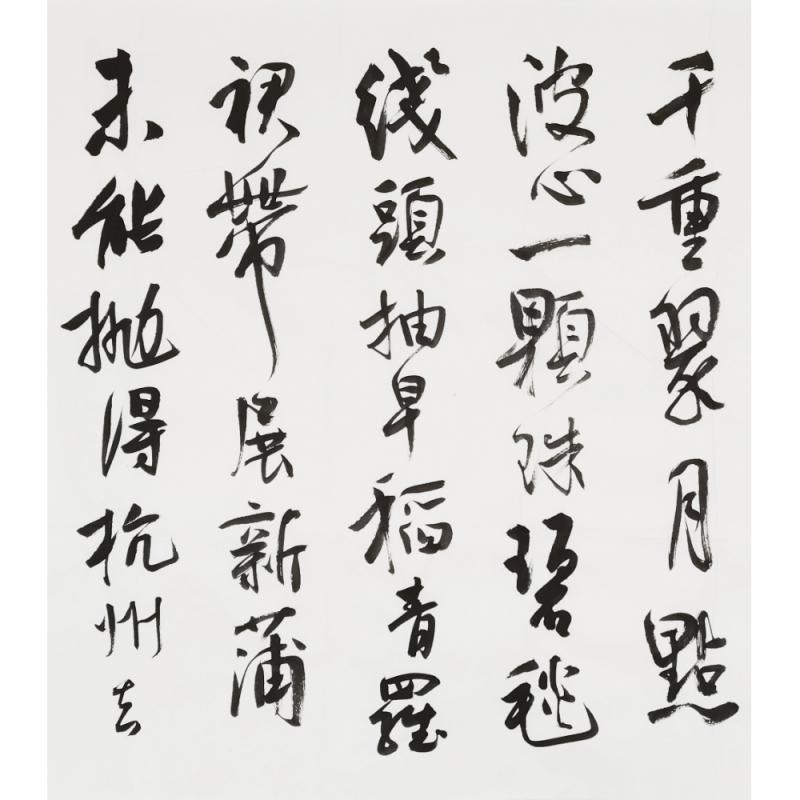 千重翠月點
波心一顆珠碧毯
线頭抽早稻青羅
裙帶展新蒲
未能抛得杭州去